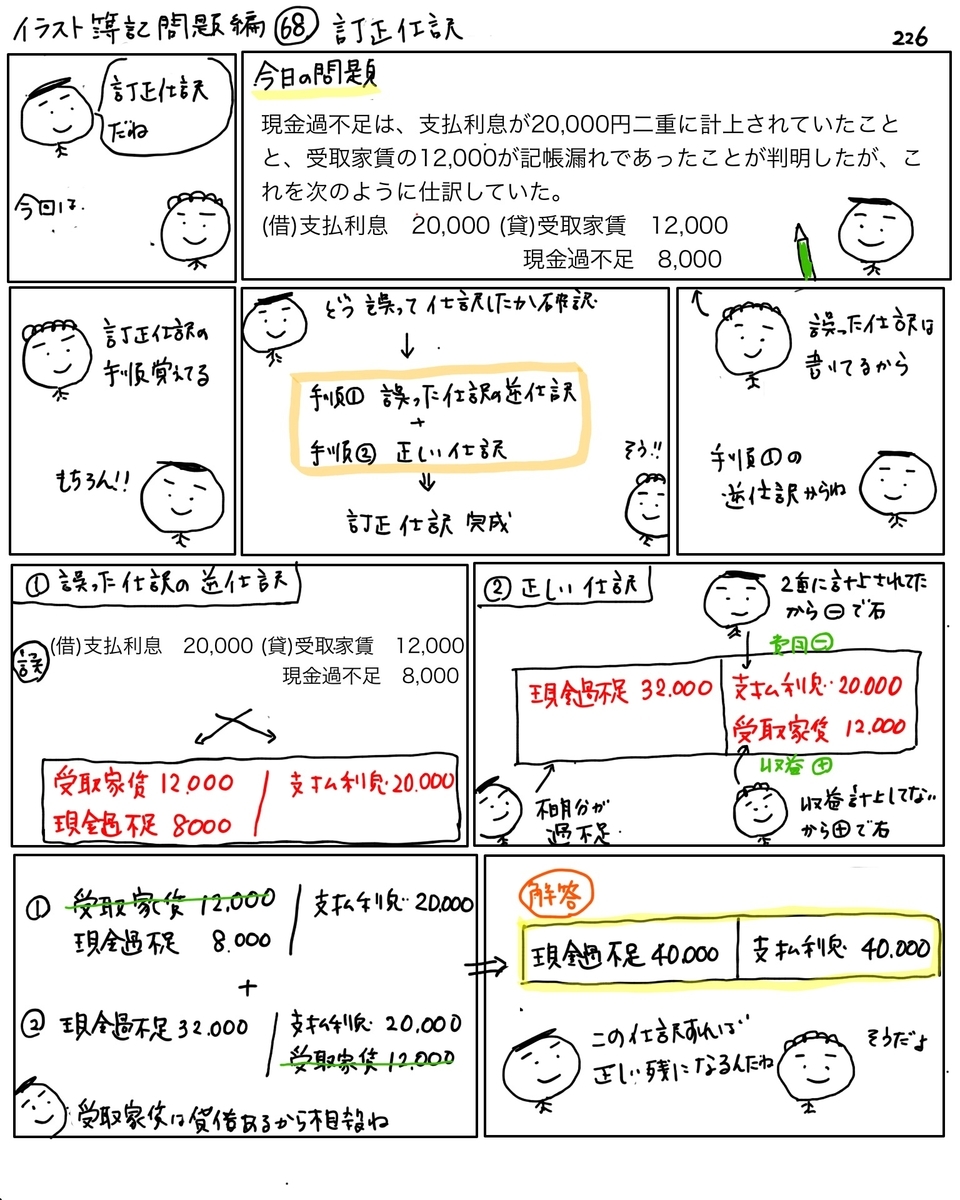 イラスト簿記問題編 68 訂正仕訳
226
訂正仕訳
だね
今回は
今日の問題
現金過不足は、支払利息が20,000円二重に計上されていたこと
と、受取家賃の12,000が記帳漏れであったことが判明したが、こ
れを次のように仕訳していた。
(借)支払利息 20,000 (貸)受取家賃 12,000
現金過不足 8,000
訂正仕訳の
手順覚えてる
もちろん!!
どう誤って仕訳したか確認
↓
手順① 誤った仕訳の逆仕訳
+
手順② 正しい仕訳
⇓
訂正仕訳 完成
そう!!
誤った仕訳は
書いてるから
手順①の
逆仕訳からね
① 誤った仕訳の逆仕訳
誤
(借)支払利息 20,000 (貸)受取家賃 12,000
現金過不足 8,000
受取家賃 12,000 / 支払利息 20,000
現金過不足 8000
② 正しい仕訳
2重に計上されてた
から⊖で右
費用⊖
現金過不足 32,000 支払利息 20,000
受取家賃 12,000
収益⊕
相手が
過不足
収益計上してない
から⊕で右
① 受取家賃 12,000 / 支払利息 20,000
現金過不足 8,000
+
② 現金過不足 32,000 / 支払利息 20,000
受取家賃 12,000
受取家賃は貸借あるから相殺ね
解答
現金過不足 40,000 支払利息 40,000
この仕訳すれば
正しい残になるんだね
そうだよ